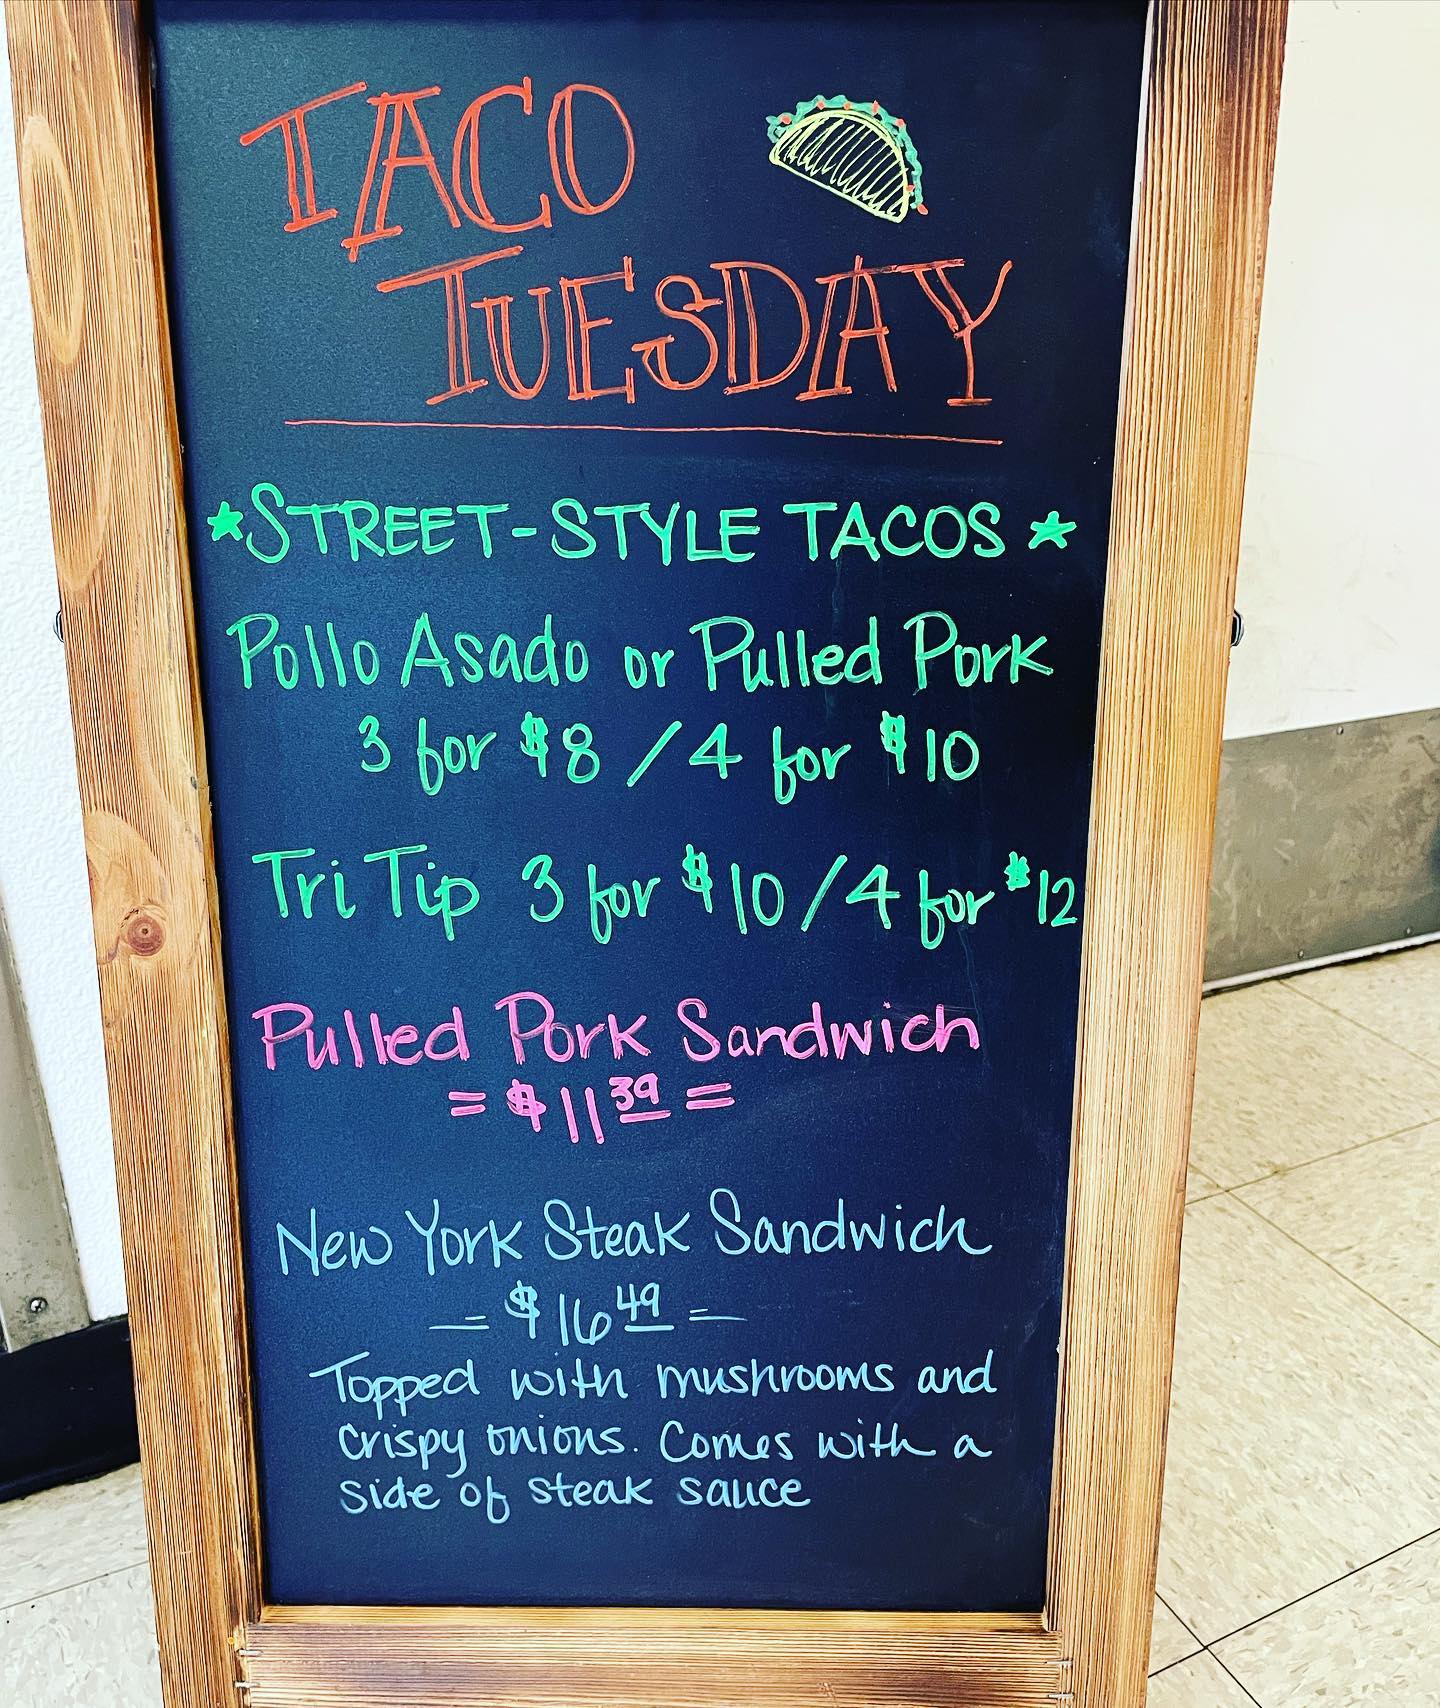 TACO
TUESDAY
*STREET-STYLE TACOS*
Pollo Asado or Pulled Pork
3 for $8 / 4 for $10
Tri Tip 3 for $10 / 4 for $12
Pulled Pork Sandwich
= $11 39 =
New York Steak Sandwich
= $16 49 =
Topped with mushrooms and
crispy onions. Comes with a
side of steak sauce